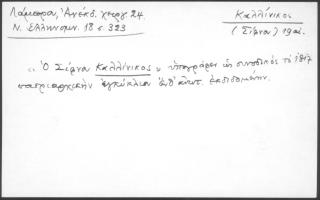 Λάμπρου, Ἀνέκδ. χειρ 24.
Ν. Ἑλληνομν. 18 σ. 323
Καλλίνικος
(Σίφνου) 19 αἰ.
"Ὁ Σίφνου Καλλίνικος" ὑπογράφει ὡς συνοδικὸς τὸ 1817
πατριαρχικὴν ἐγκύκλιον ἐκδιδομένην.